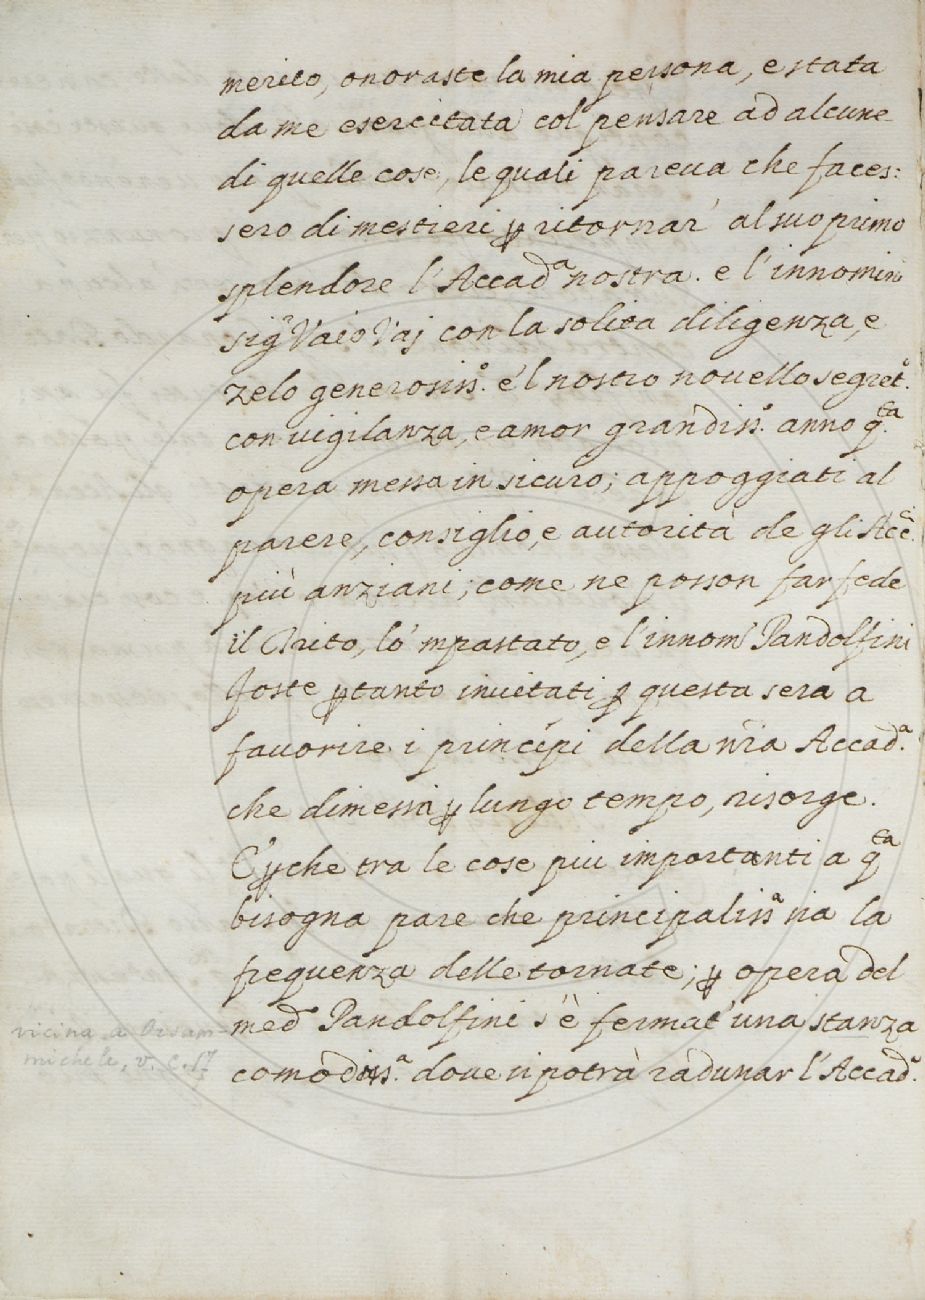 merito, onoraste la mia persona, e stata
da me esercitata col' pensare ad alcune
di quelle cose, le quali pareua che faces:
sero di mestieri ꝑ ritornar' al suo primo
splendore l'Accad.ª nostra. e l'innomin
sig.r Vaio Vaj con la solita diligenza, e
zelo generosiss.º e 'l nostro nouello segret.º
con uigilanza, e amor grandiss.º anno q.ta
opera messa in sicuro; appoggiati al
parere, consiglio, e autorità de gli Acc.ci
più anziani; come ne posson far fede
il Trito, lo 'mpastato, e l'innom.' Pandolfini
foste ꝑtanto inuitati ꝑ questa sera a
fauorire i principi della nr̃a Accad.ª
che dimessi ꝑ lungo tempo, risorge.
E ꝑche tra le cose piu importanti a q.ta
bisogna pare che principaliss.ª sia la
frequenza delle tornate; ꝑ opera del
med.º Pandolfini s'è fermat' una stanza
comodiss.ª doue si potrà radunar l'Accad.ª
vicina a Orsam-
michele, v. c. 17